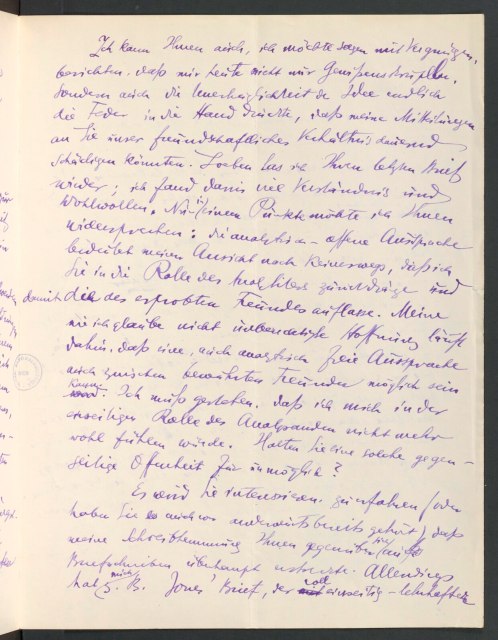 Ich kann Ihnen auch, ich möchte sagen mit Vergnügen,
berichten, daß mir heute nicht nur Gewissensskrupeln,
sondern auch die Unerträglichkeit der Idee endlich
die Feder in die Hand drückte, daß meine Mitteilungen
an Sie unser freundschaftliches Verhältnis dauernd
schädigen könnten. Soeben las ich Ihren letzten Brief
wieder; ich fand darin viel Verständnis und
Wohlwollen. Nur in einem Punkte möchte ich Ihnen
widersprechen: die analytisch-offene Aussprache
bedeutet meiner Ansicht nach keineswegs, daß ich
Sie in die Rolle des Analytikers zurückdränge und
damit die des erprobten Freundes auflasse. Meine
wie ich glaube nicht unberechtigte Hoffnung läuft
dahin, daß eine, auch analytisch freie Aussprache
auch zwischen bewährten Freunden möglich sein
kann. Ich muß gestehen, daß ich mich in der
einseitigen Rolle des Analysanden nicht mehr
wohl fühlen würde. Halten Sie eine solche gegen-
seitige Offenheit für unmöglich?
Es wird Sie interessieren zu erfahren (oder
haben Sie es auch von anderwärts bereits gehört), daß
meine Schreibhemmung Ihnen gegenüber sich aufs
Briefschreiben überhaupt erstreckte. Allerdings
hat mich z. B. Jones' Brief, der voll einseitig-lehrhafter